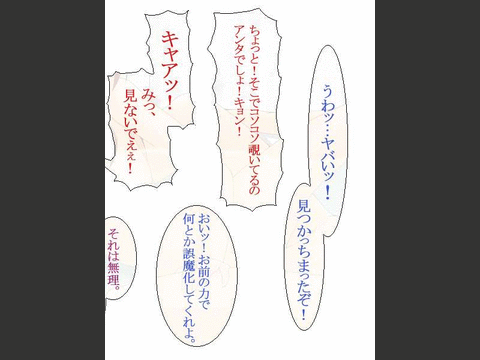 うわッ…ヤバいッ！
見つかっちまったぞ！
ちょっと！そこでコソコソ覗いてるの
アンタでしょ！キョン！
キャアッ！
みっ、
見ないでえぇ！
おいッ！お前の力で
何とか誤魔化してくれよ。
それは無理。